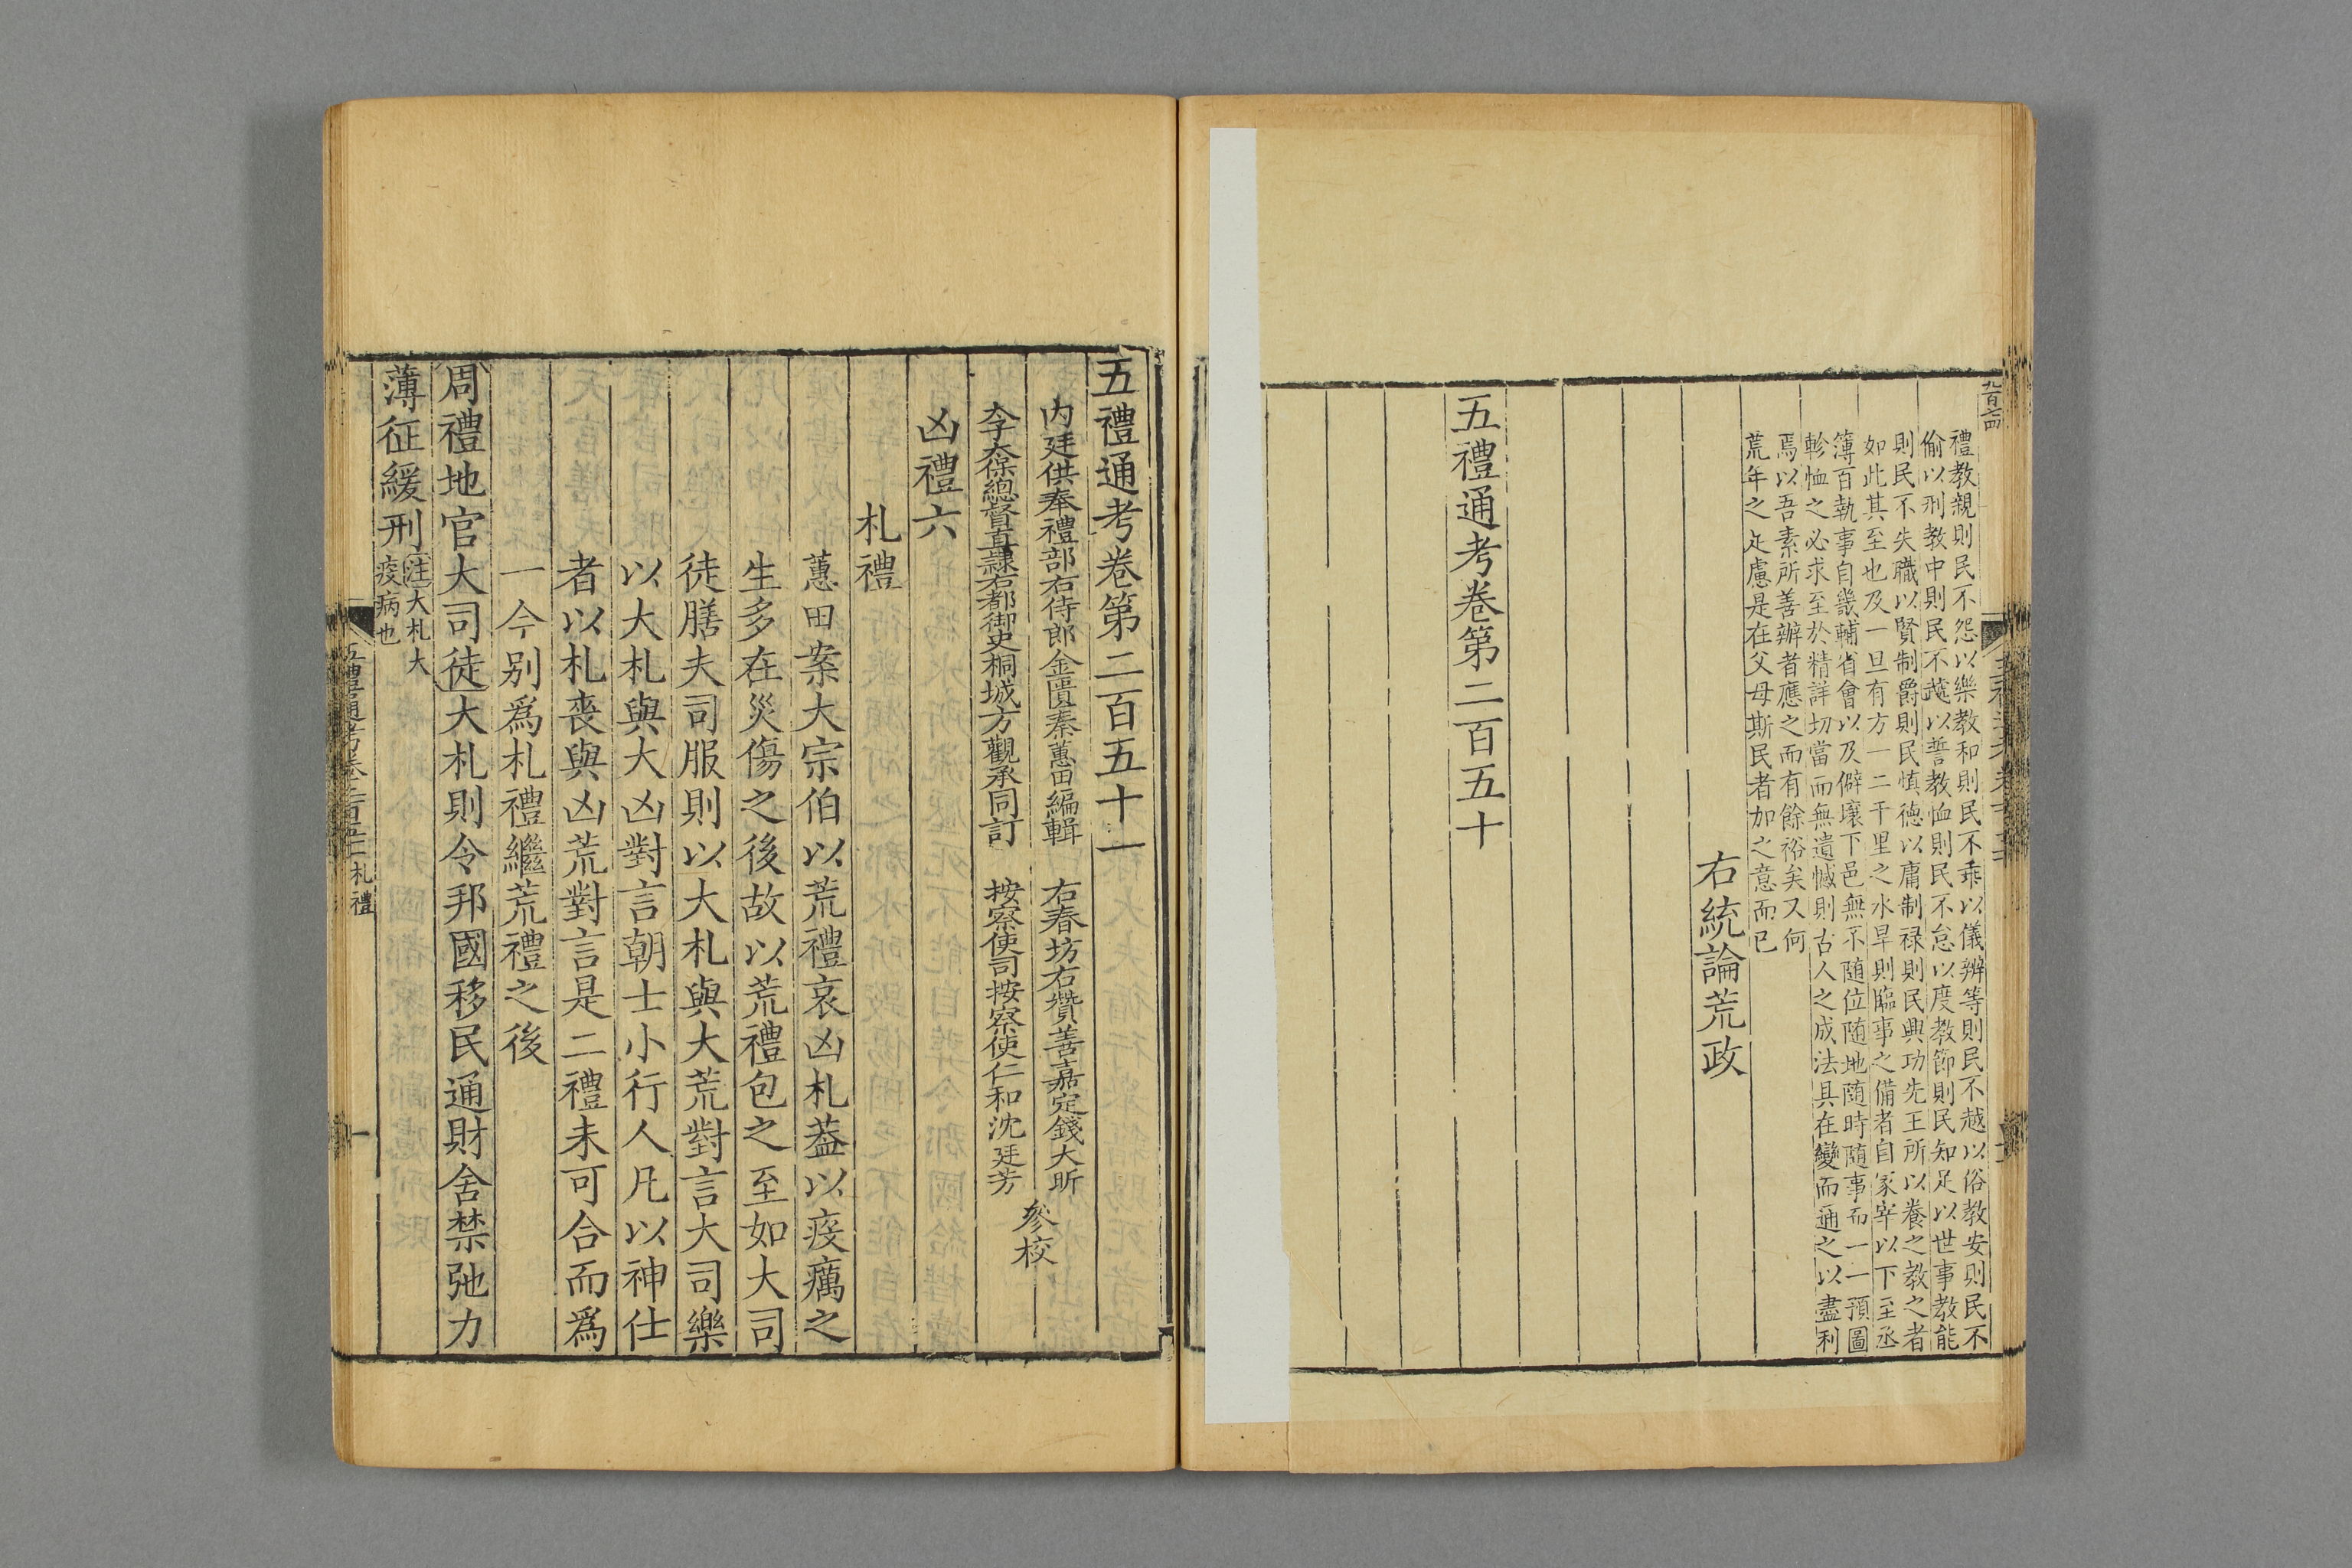 禮教親則民不怨以樂教和則民不乖以儀辨等則民不越以俗教安則民不
偷以刑教中則民不虣以誓教恤則民不怠以度教節則民知足以世事教能
則民不失職以賢制爵則民慎德以庸制禄則民興功先王所以養之教之者
如此其至也及一旦有方一二千里之水旱則臨事之備者自冢宰以下至丞
簿百執事自畿輔省會以及僻壤下邑無不随位随地随時随事而一一預圖
軫恤之必求至於精詳切當而無遺憾則古人之成法具在變而通之以盡利
焉以吾素所善辦者應之而有餘裕矣又何
荒年之足慮是在父母斯民者加之意而已
右統論荒政
五禮通考卷第二百五十
五禮通考卷第二百五十一
内廷供奉禮部右侍郎金匱秦蕙田編輯 右春坊右贊善嘉定錢大昕
太子太保總督直隷右都御史桐城方觀承同訂 按察使司按察使仁和沈廷芳
參校
凶禮六
札禮
蕙田案大宗伯以荒禮哀凶札葢以疫癘之
生多在災傷之後故以荒禮包之至如大司
徒膳夫司服則以大札與大荒對言大司樂
以大札與大凶對言朝士小行人凡以神仕
者以札喪與凶荒對言是二禮未可合而爲
一今别爲札禮繼荒禮之後
周禮地官大司徒大札則令邦國移民通財舍禁弛力
薄征緩刑注大札大
疫病也
五禮通考卷二百五十一 札禮 一